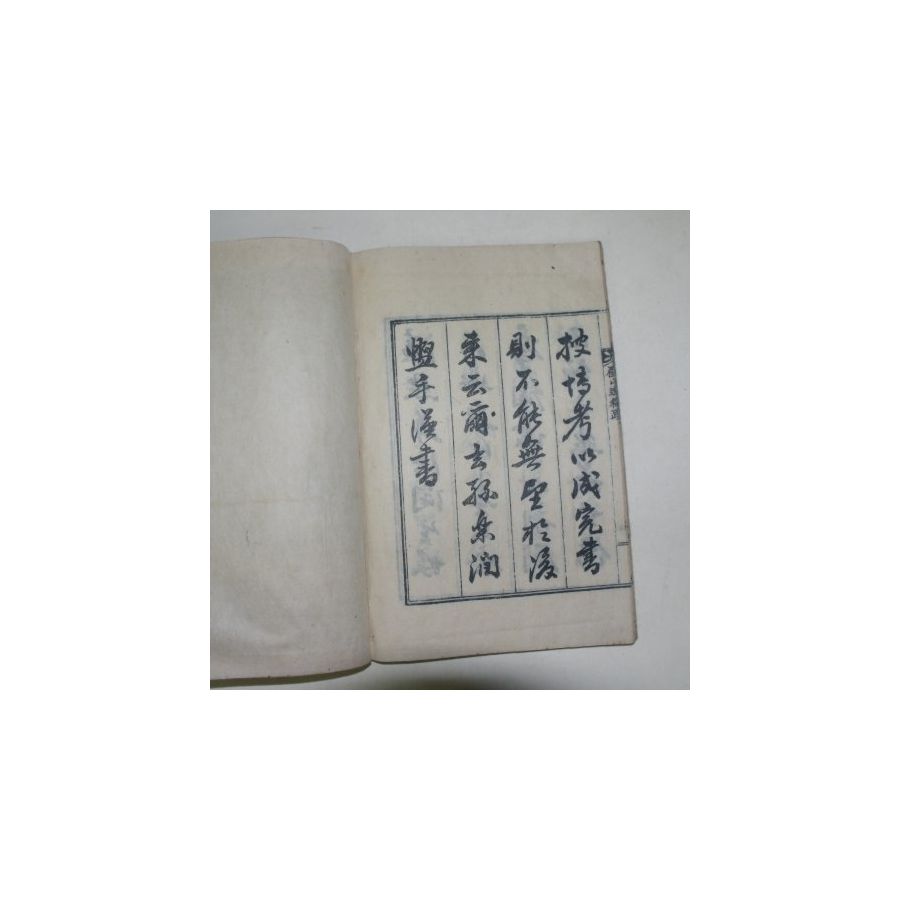 披博考以成完書
則不能無望於後
來云爾玄孫秉潤
盥手謹書